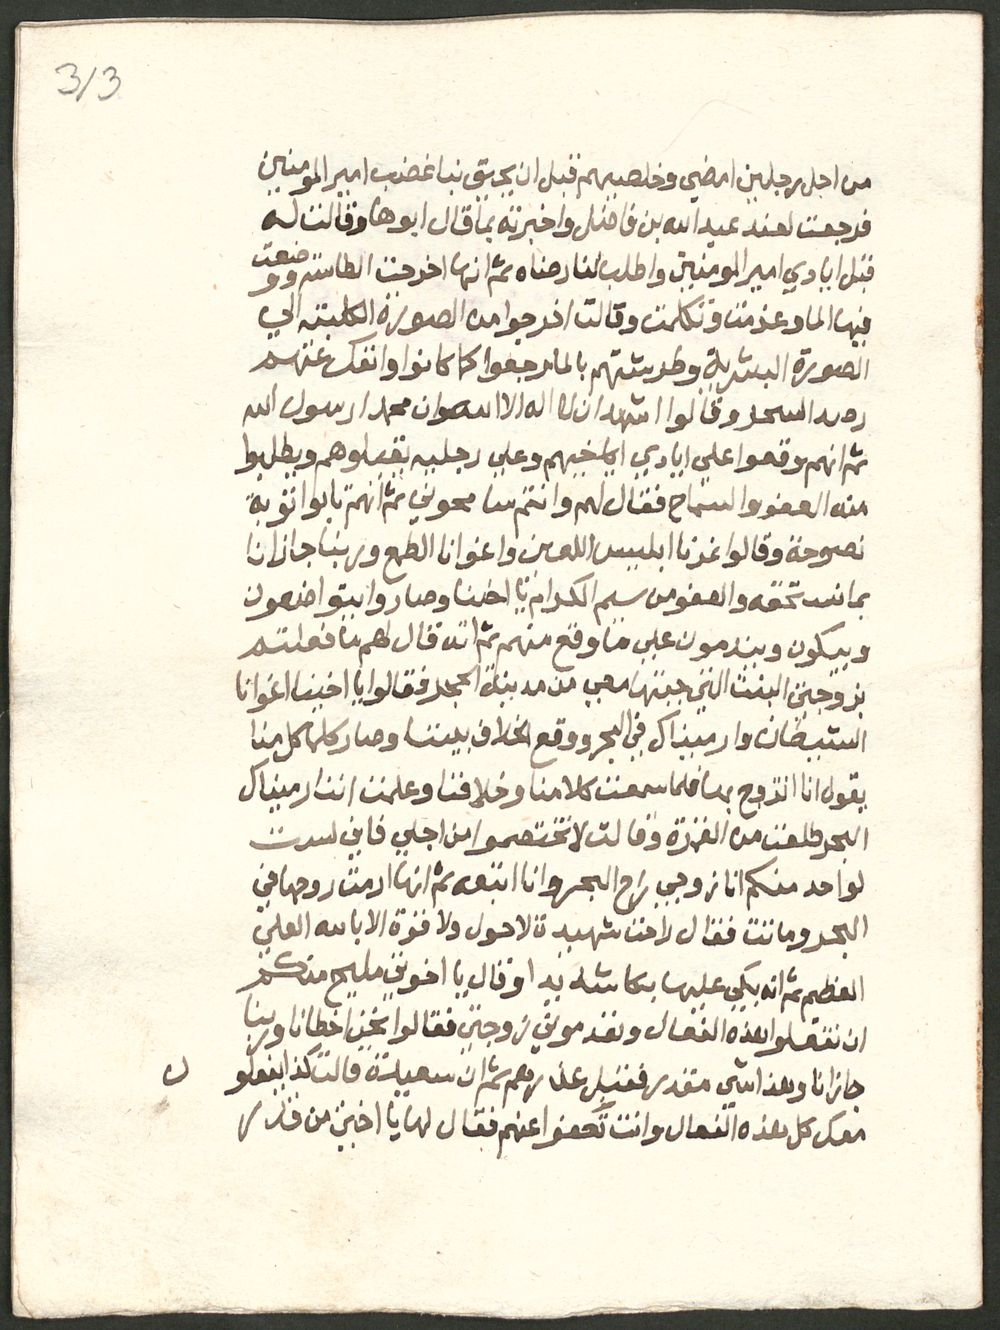 3/3
من اجل رجلين امضي وخلصيهم قبل ان يحيق بنا غضب امير المومنين
فرجعت لعند عبد الله بن فاضل واخبرته بما قال ابوها وقالت له
قبل ايادي امير المومنين واطلب لنا رضاه ثم انها اخرجت الطاسه ووضعت
فيها الما وعزمت وتكلمت وقالت اخرجوا من الصورة الكلبيه الي
الصورة البشرية وطرشتهم بالما رجعوا كما كانوا وانفك عنهم
رصد السحر وقالوا اشهد ان لا اله الا الله وان محمدا رسول الله
ثم انهم وقعوا علي ايادي اخيهم وعلي رجليه يقبلوهم ويطلبوا
منه العفو والسماح فقال لهم وانتم سامحوني ثم انهم تابوا توبة
نصوحة وقالوا غرنا ابليس اللعين واغوانا الطمع وربنا جازانا
بما نستحقه والعفو من شيم الكرام يا اخينا وصاروا يتواضعون
ويبكون ويندمون علي ما وقع منهم ثم انه قال لهم ما فعلتم
بزوجتي البنت التي جبتها معي من مدينة الحجر فقالوا يا اخينا اغوانا
الشيطان وارميناك في البحر ووقع الخلاف بيننا وصار كلما كل منا
يقول انا اتزوج بها فلما سمعت كلامنا وخلافنا وعلمت اننا ارميناك
البحر طلعت من الغزرة وقالت لا تختصموا من اجلي فاني لست
لواحد منكم انا زوجي راح البحر وانا اتبعه ثم انها ارمت روحها في
البحر وماتت فقال راحت شهيدة لا حول ولا قوة الا بالله العلي
العظيم ثم انه بكي عليها بكا شديدا وقال يا اخوتي مليح منكم
ان تفعلوا هذه الفعال وتعدموني زوجتي فقالوا نحن اخطانا وربنا
جازانا وهذا شي مقدر فقبل عذرهم ثم ان سعيدة قالت كذا يفعلو
معك كل هذه الفعال وانت تعفوا عنهم فقال لها يا اختي من قدر